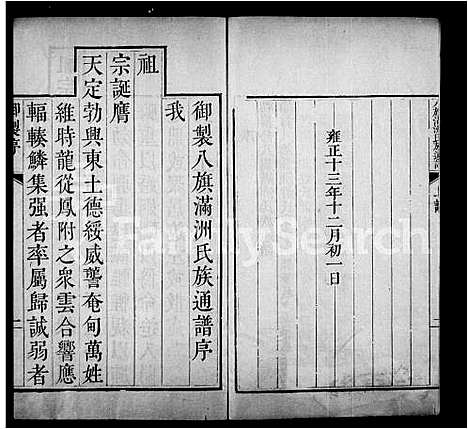 雍正十三年十二月初一日
御製八旗滿洲氏族通譜序
我
祖
宗誕膺
天定勃興東土德綏威讋奄甸萬姓
維時龍從鳳附之衆雲合響應
輻輳鱗集强者率屬歸誠弱者
御製序
二
FamilySearch